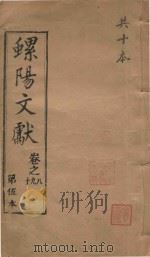 共十本
螺陽文獻
卷之八九十
第伍本